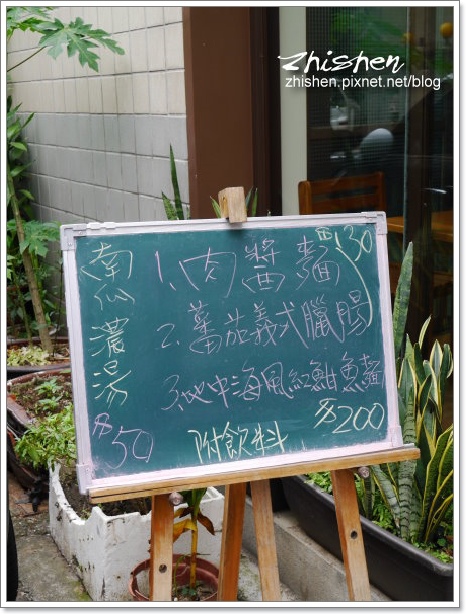 Zhishen
zhishen.pixnet.net/blog
南瓜濃湯
$50
1.肉醬麵
$130
2.蕃茄義式臘腸
3.地中海風紅魽魚麵
$200
附飲料